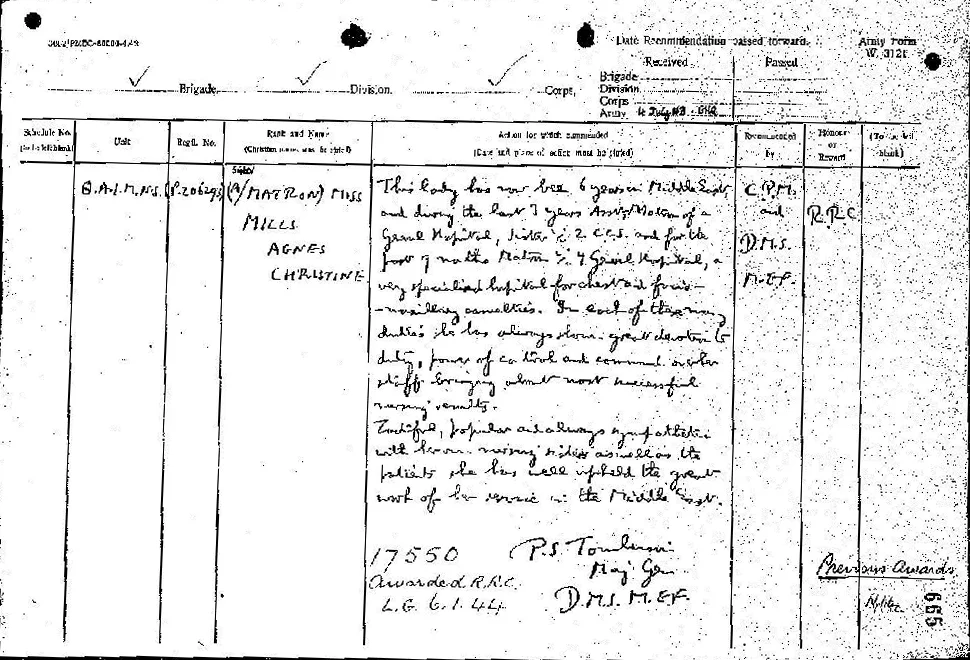 Date Recommendation passed forward.
Army Form
W. 3121
Received Passed
Brigade Division Corps,
Brigade
Division
Corps
Army 12 July 43. GHQ
Schedule No.
(to be left blank)
Unit
Regtl. No.
Rank and Name
(Christian names must be stated)
Action for which commended
(Date and place of action must be stated)
Recommended
by
Honour
or
Reward
(To be left
blank)
Q.A.I.M.N.S.
Sister
(A/MATRON) MISS
MILLS
AGNES
CHRISTINE
This lady has now been 6 years in Middle East
and during the last 3 years Asst/Matron of a
General Hospital, Sister i/c 2 C.C.S. and for the
past 9 months Matron i/c 7 General Hospital, a
very specialised hospital for chest and facio-
-maxillary casualties. In each of these many
duties she has always shown great devotion to
duty, power of control and command over her
staff bringing about most successful
nursing results.
Tactful, popular and always sympathetic
with her own nursing sisters as well as the
patients she has well upheld the great
work of her service in the Middle East.
C.P.M.
and
D.M.S.
M.E.F.
R.R.C.
P.S. Tomlinson
Maj Gen
D.M.S. M.E.F.
17550
Awarded R.R.C.
L.G. 6.1.44
Previous Awards
665